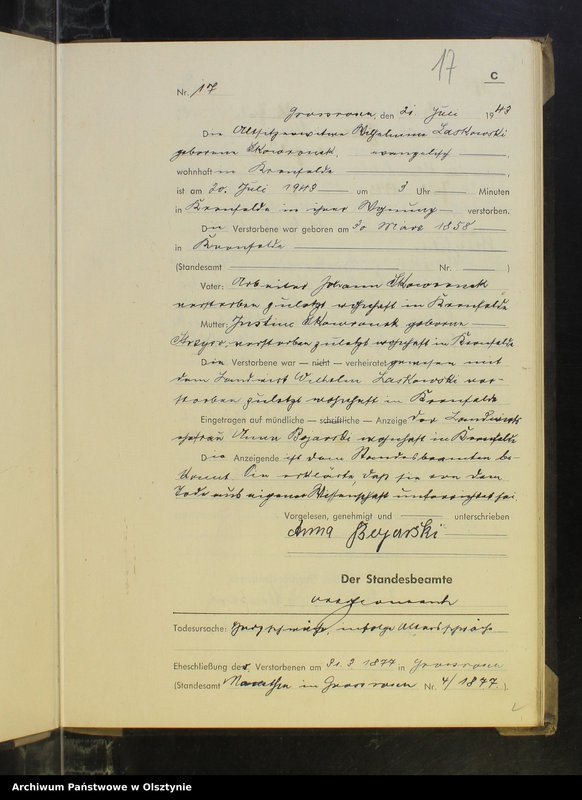 17
C
Nr. 17
Grossrosen, den 21 Juli 1943
Die Altsitzerwitwe Wilhelmine Laskowski
geborene Skowronek, evangelisch
wohnhaft in Kronfelde
ist am 20. Juli 1943 um 3 Uhr Minuten
in Kronfelde in ihrer Wohnung verstorben.
Die Verstorbene war geboren am 30 März 1858
in Kronfelde
(Standesamt Nr. )
Vater: Arbeiter Johann Skowronek
verstorben zuletzt wohnhaft in Kronfelde
Mutter: Justine Skowronek geborene
verstorben zuletzt wohnhaft in Kronfelde
Die Verstorbene war — nicht — verheiratet gewesen mit
dem Landwirt Wilhelm Laskowski ver-
storben zuletzt wohnhaft in Kronfelde
Eingetragen auf mündliche — schriftliche — Anzeige der Landwirts
ehefrau Anna Bojarski wohnhaft in Kronfelde
Die Anzeigende ist dem Standesbeamten be-
kannt. Sie erklärte, daß sie von dem
Tode aus eigener Wissenschaft unterrichtet sei
Vorgelesen, genehmigt und unterschrieben
Anna Bojarski
Der Standesbeamte
Todesursache: Herzschwäche, infolge Altersschwäche
Eheschließung der Verstorbenen am 21.3.1877 in Grossrosen
(Standesamt in Grossrosen Nr. 4/1877.)
Archiwum Państwowe w Olsztynie